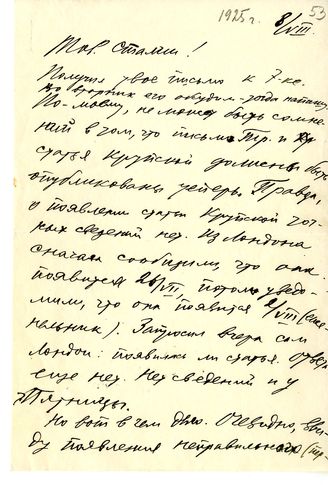 1925 г.
53
8/VIII.
Тов. Сталин!
Получил твое письмо к 7-ке.
Во вторник его обсудим – тогда напишу.
По-моему, не может быть сомне-
ний в том, что письмо Тр. и
статья Крупской должны быть
опубликованы теперь. Правда,
о появлении статьи Крупской точ-
ных сведений нет. Из Лондона
сначала сообщили, что она
появится 26/VII, потом уведо-
мили, что она появится 2/VIII (еже-
недельник). Запросил вчера сам
Лондон: появилась ли статья. Ответа
еще нет. Нет сведений и у
Пятницы.
Но вот в чем дело. Очевидно, вви-
ду появления неправильного (пер-